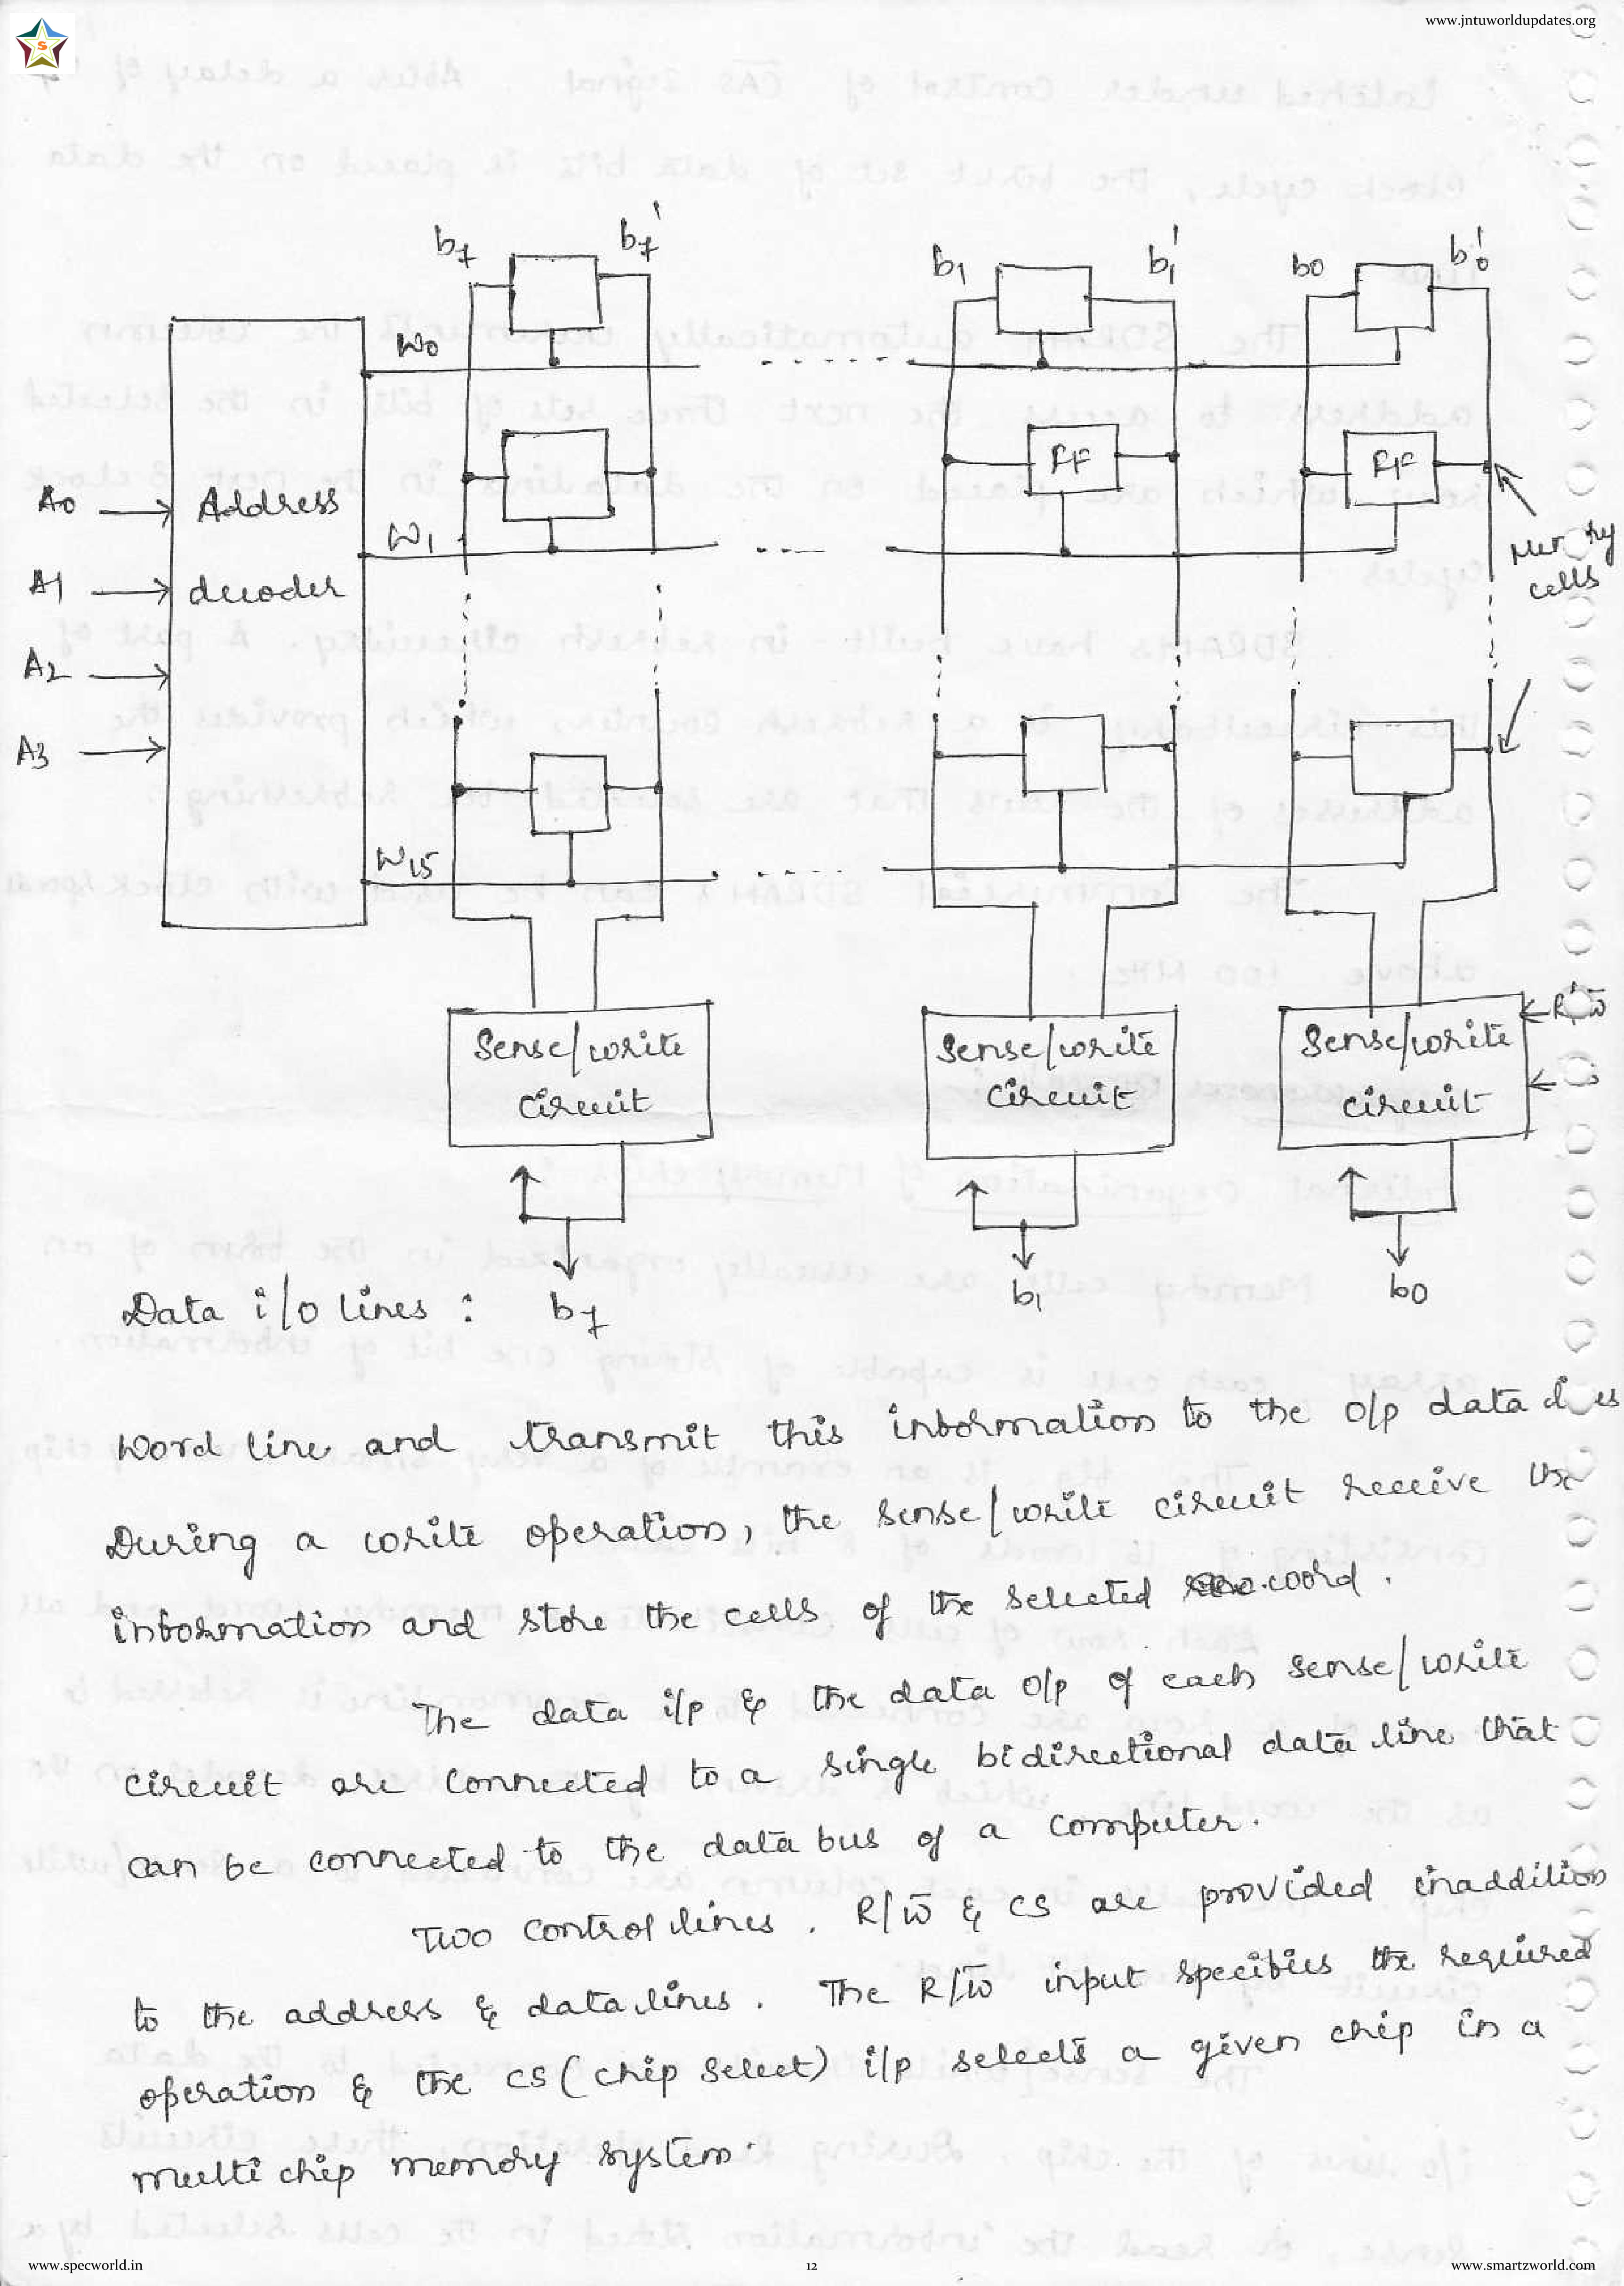 www.jntuworldupdates.org
S
b7 b7' b1 b1' b0 b0'
W0
A0 Address
FF FF
W1
Memory
cells
A1 decoder
A2
A3
W15
R/W̅
Sense/write Sense/write Sense/write
circuit circuit circuit
Data i/o lines : b7 b1 b0
Word line and transmit this information to the o/p data lines
During a write operation, the sense/write circuit receive the
information and store the cells of the selected word.
The data i/p & the data o/p of each sense/write
circuit are connected to a single bidirectional data line that
can be connected to the data bus of a computer.
Two control lines. R/W̅ & CS are provided inaddition
to the address & data lines. The R/W̅ input specifies the required
operation & the CS (chip select) i/p selects a given chip in a
multi chip memory system.
www.specworld.in 12 www.smartzworld.com